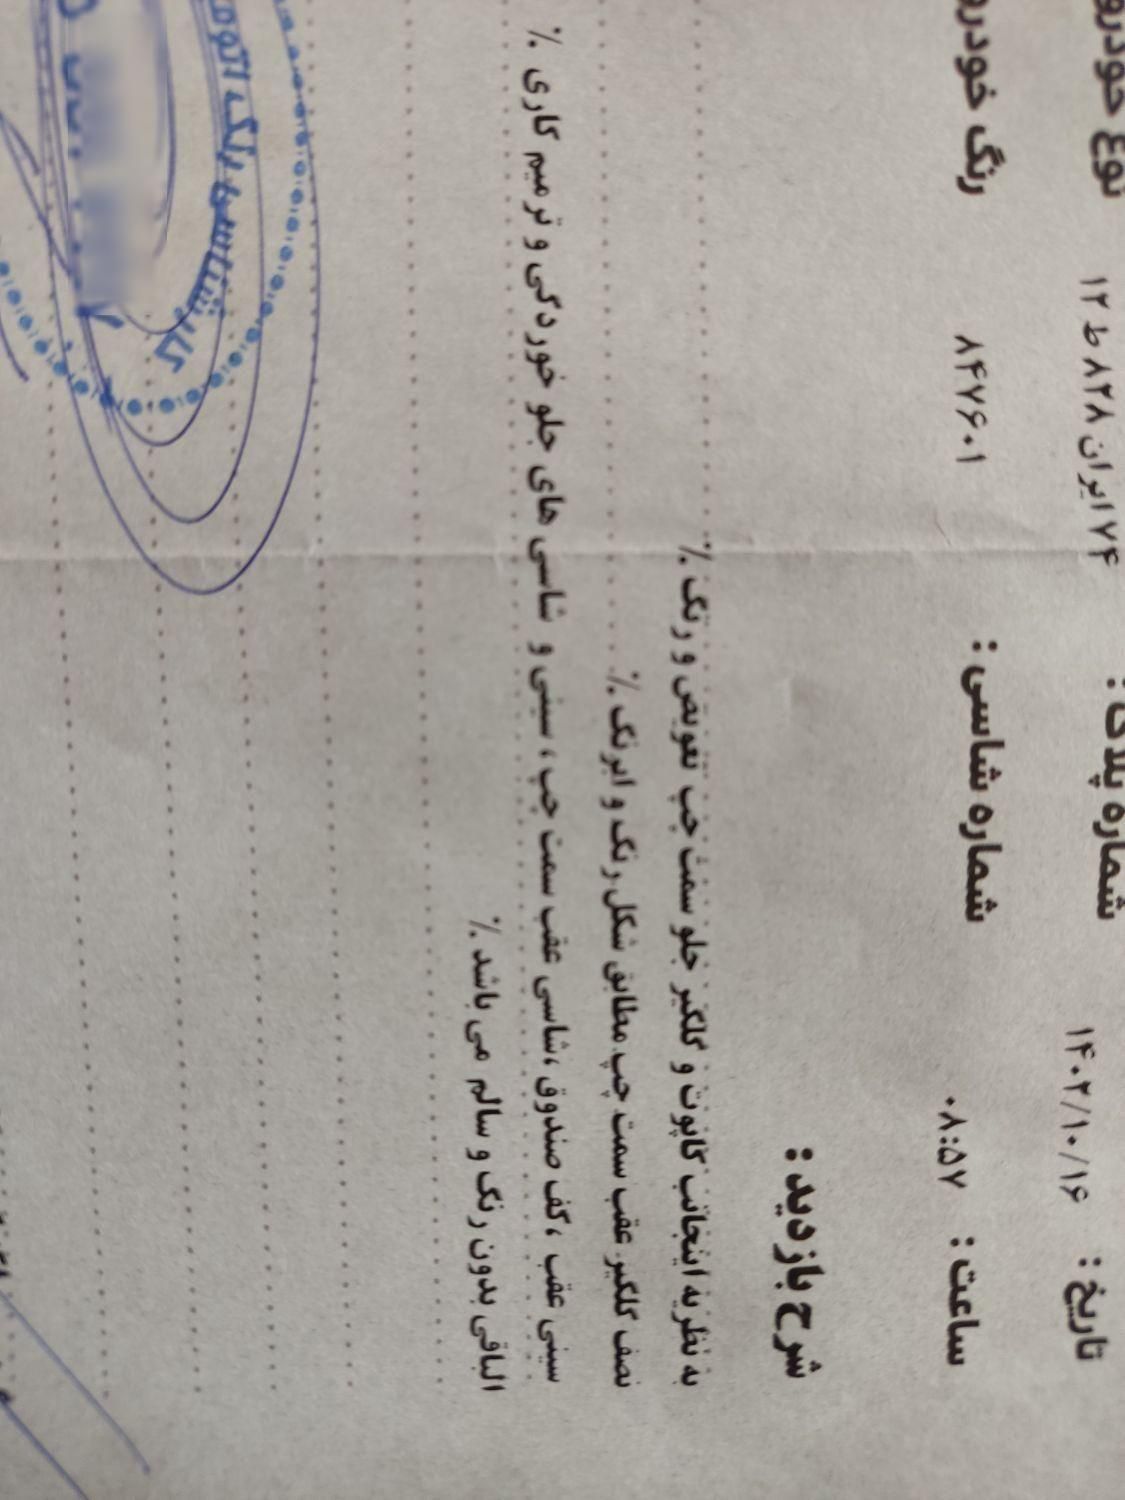 تاریخ : ۱۴۰۲/۱۰/۱۶ شماره پلاک : ۷۴ ایران ۸۲۸ ط ۱۲ نوع خودرو
ساعت : ۰۸:۵۷ شماره شاسی : ۸۴۷۶۰۱ رنگ خودرو
شرح بازدید :
به نظریه اینجانب کاپوت و گلگیر جلو سمت چپ تعویض و رنگ ٪
نصف گلگیر عقب سمت چپ مطابق شکل رنگ و ابرنگ ٪
سینی عقب ،کف صندوق ،شاسی عقب سمت چپ ، سینی و شاسی های جلو خوردگی و ترمیم کاری ٪
الباقی بدون رنگ و سالم می باشد ٪